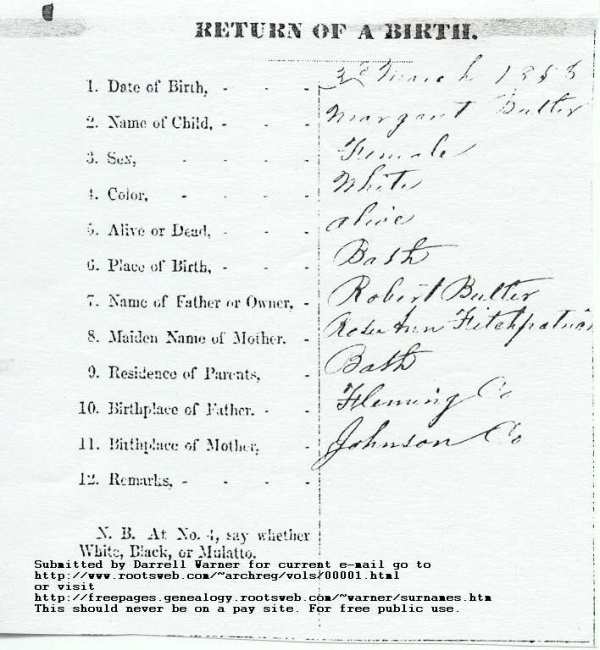 RETURN OF A BIRTH.
1. Date of Birth, - - - 3d March 1853
2. Name of Child, - - - Margaret Butler
3. Sex, - - - - Female
4. Color, - - - - White
5. Alive or Dead, - - - alive
6. Place of Birth, - - - Bath
7. Name of Father or Owner, - Robert Butler
8. Maiden Name of Mother. - Ann Fitchpatrick
9. Residence of Parents, - Bath
10. Birthplace of Father. - - Fleming Co
11. Birthplace of Mother, - Johnson Co
12. Remarks, - - - -
N. B. At No. 4, say whether
White, Black, or Mulatto.
Submitted by Darrell Warner for current e-mail go to
http://www.rootsweb.com/~archreg/vols/00001.html
or visit
http://freepages.genealogy.rootsweb.com/~warner/surnames.htm
This should never be on a pay site. For free public use.